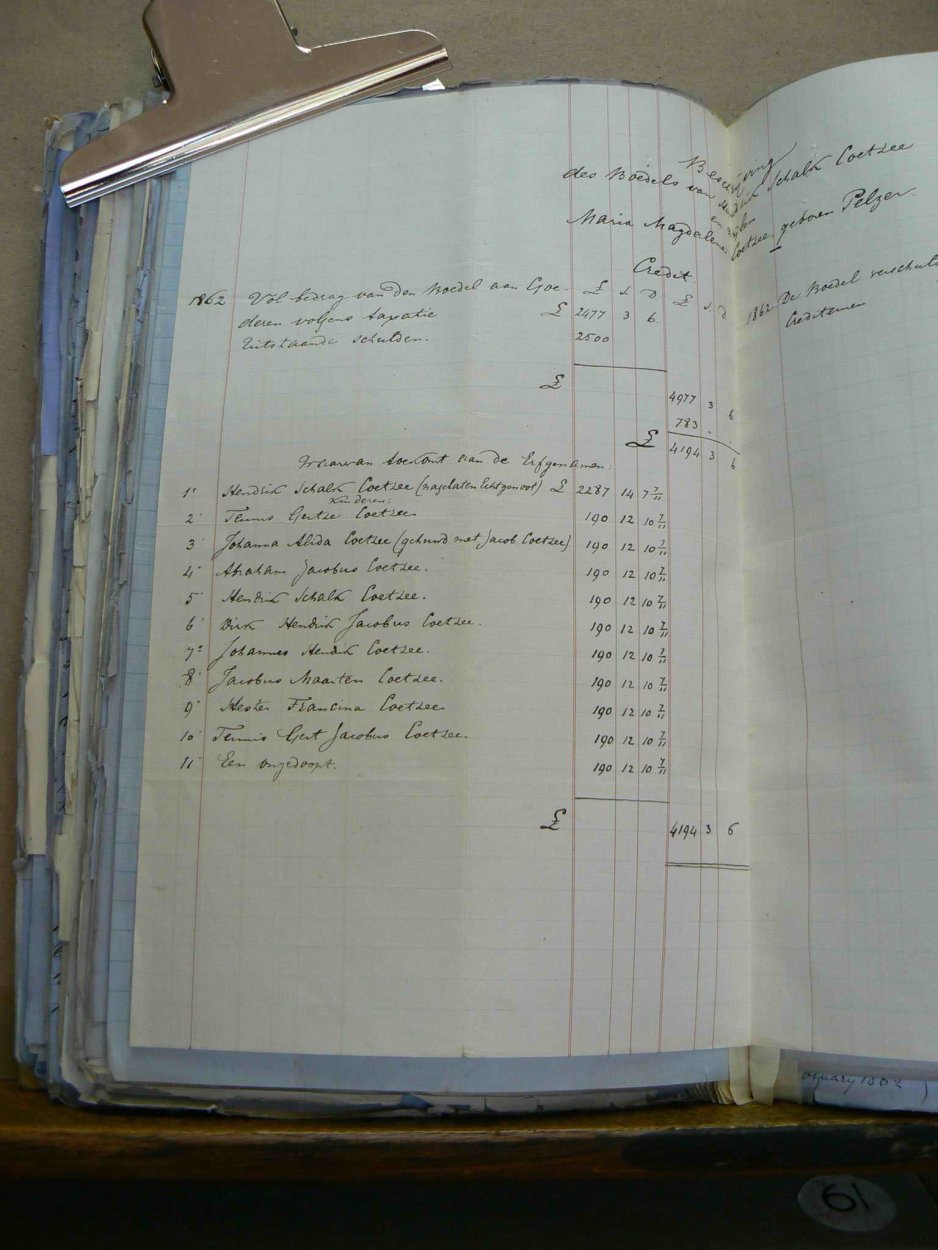 Beschrijving
des Boedels van Hendrik Schalk Coetzee
en wijlen
Maria Magdalena Coetzee, geboren Pelzer.
Credit
£ s D £ s D
1862 Vol bedrag van den Boedel aan Goe-
deren volgens taxatie £ 2477 3 6
Uitstaande schulden. 2500
£ 4977 3 6
783 . .
£ 4194 3 6
Waarvan toekomt aan de Erfgenamen:
1' Hendrik Schalk Coetzee (nagelaten Echtgenoot) £ 2287 14 7 7/11
Kinderen:
2' Teunis Gertze Coetzee 190 12 10 7/11
3' Johanna Alida Coetzee (gehuwd met Jacob Coetzee) 190 12 10 7/11
4' Abraham Jacobus Coetzee. 190 12 10 7/11
5' Hendrik Schalk Coetzee. 190 12 10 7/11
6' Dirk Hendrik Jacobus Coetzee. 190 12 10 7/11
7' Johannes Hendrik Coetzee. 190 12 10 7/11
8' Jacobus Maarten Coetzee. 190 12 10 7/11
9' Hester Francina Coetzee 190 12 10 7/11
10' Teunis Gert Jacobus Coetzee. 190 12 10 7/11
11' Een ongedoopt. 190 12 10 7/11
£ 4194 3 6
1862 De Boedel verschul
Crediteuren
61